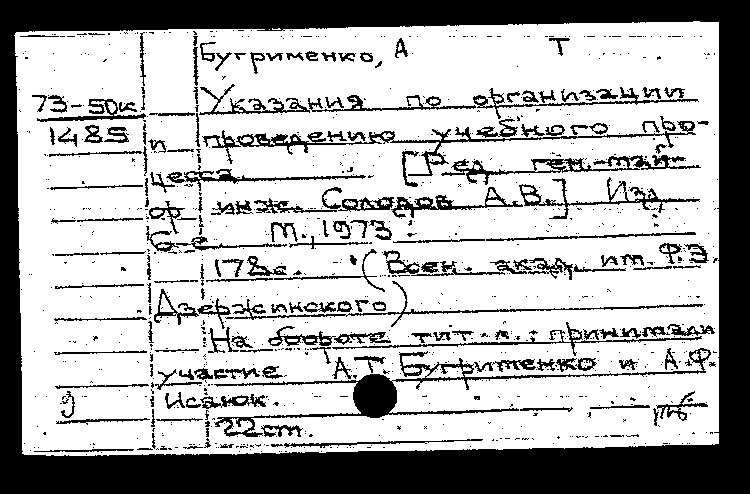 Бугрименко, А Т
73-50к. Указания по организации
1485 и проведению учебного про-
цесса. [Ред. ген.-май-
ор инж. Солодов А.В.] Изд.
6-е М., 1973.
178с. (Воен. акад. им. Ф.Э.
Дзержинского)
На обороте тит. л.: принимали
участие А.Т. Бугрименко и А.Ф.
9 Исанюк.
22см.